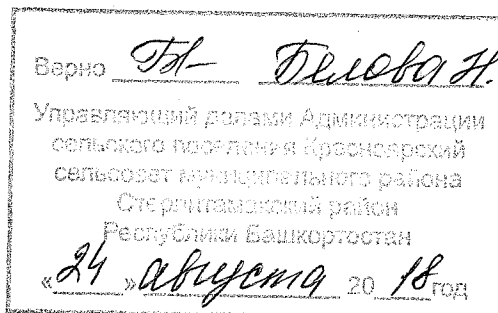 Верно БН- Белова Н.
Управляющий делами Администрации
сельского поселения Красноярский
сельсовет муниципального района
Стерлитамакский район
Республики Башкортостан
«24» августа 20 18 год